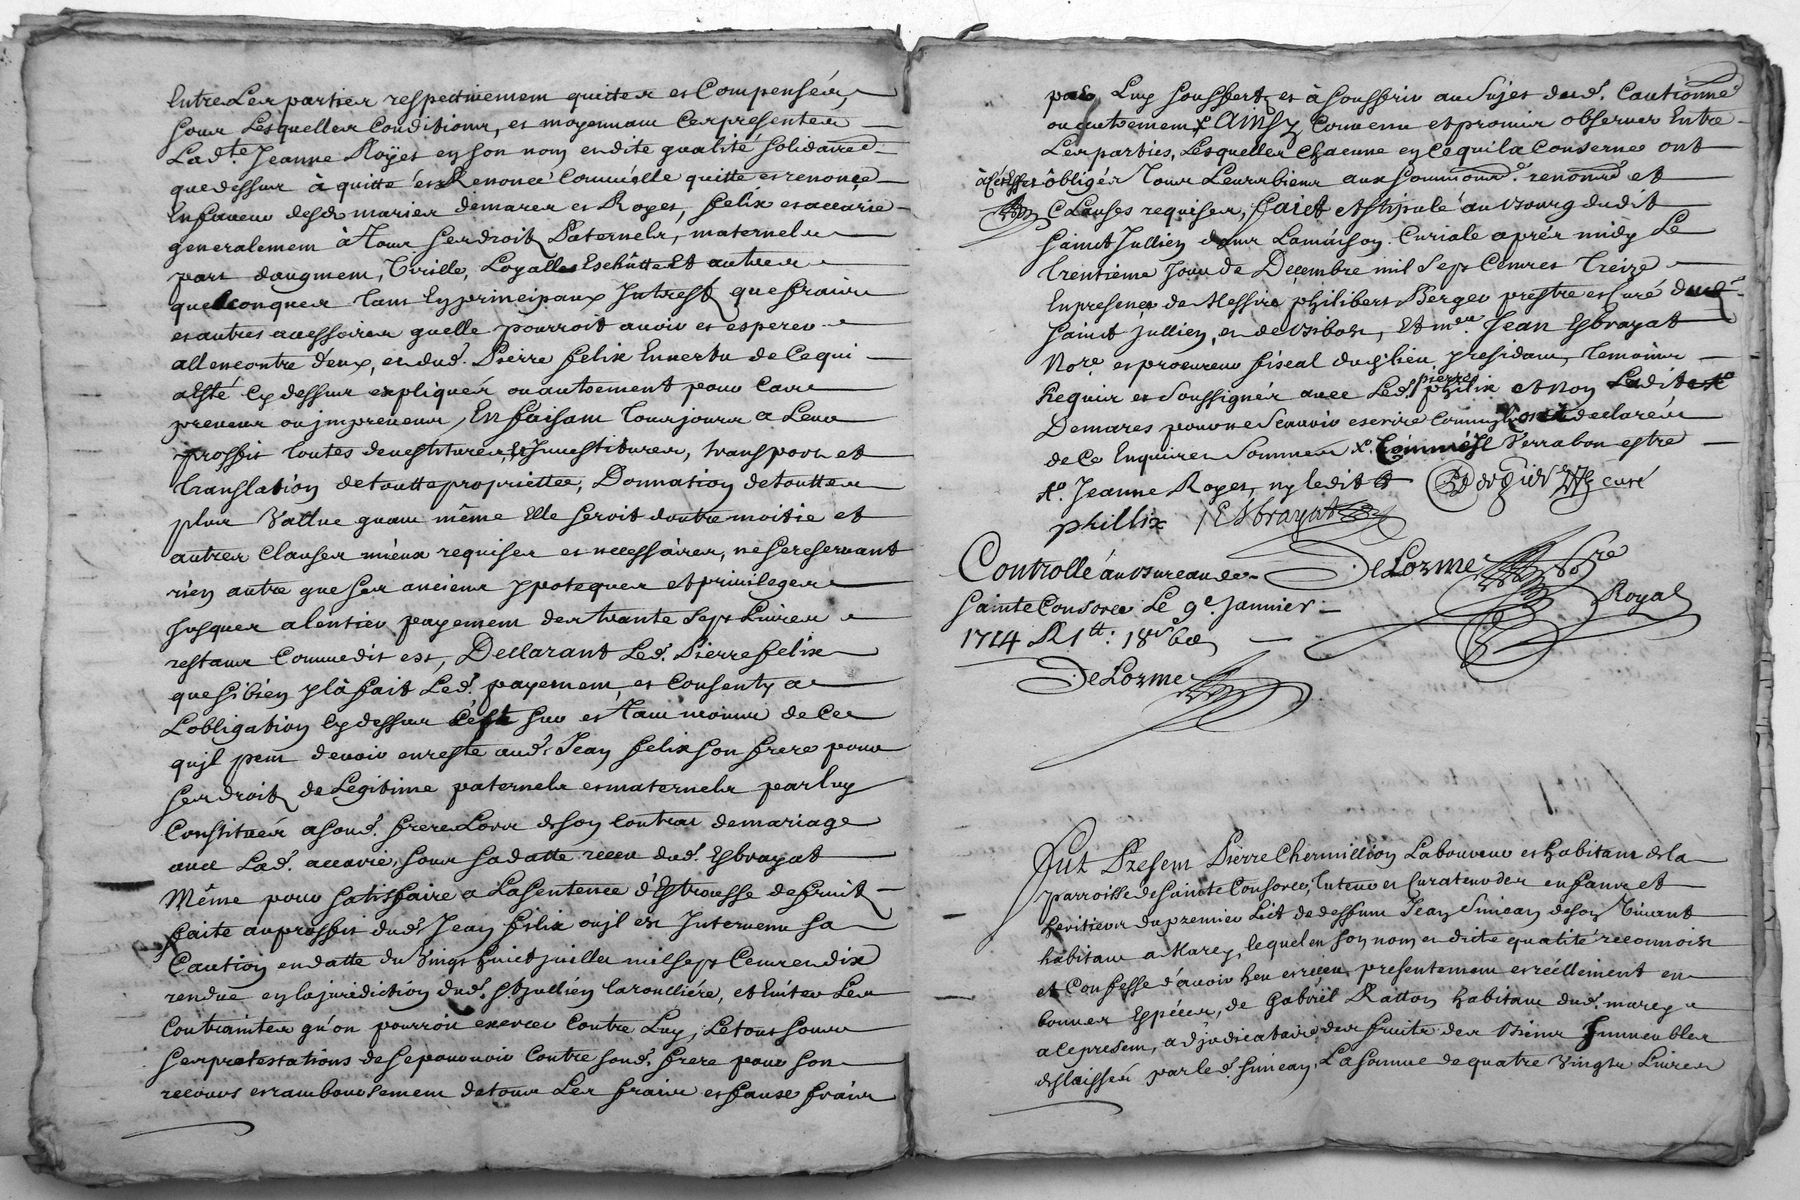 Entre Les parties respectivement quittes et Compensés,
Sous Lesquelles Conditions, et moyennant Ces presentes
Lad.te Jeanne Royer en son nom et dite qualité solidaire
que dessus à quitté et Renoncé Comme elle quitte et renonce
En faveur desd. mariez demares et Royer, felix et accarie
generalement à Tous Ses droits Paternels, maternels
part daugment, Virille, Loyalles Eschutte Et autres
quelconques tant En principaux Intrest que fraix
et autres accessoires quelle pourroit avoir et esperer
allencontre deux, et dud. Pierre felix En vertu de Ce qui
a esté Cy dessus expliqués ou autrement pour Cause
preveue ou impreveue, En faisant Tousjours a Leur
proffit toutes devestitures, et Investitures, transport et
translation de toutte proprietée, Donnation de touttes
plus Vallue quant même Elle seroit doutre moitie et
autres Clauses mieux requises et necessaires, ne se reservant
rien autre que ses anciens ypoteques et privileges
Jusques a lentier payement des trante sept Livres
restans Comme dit est, Declarant Led. Pierre felix
que si bien y là fait Led. payement, et Consenty a
Lobligation Cy dessus C'est sur et tant moins de Ce
quil peut devoir en reste aud. Jean felix son frere pour
ses droits de Legitime paternels et maternels par luy
Constitués a sond. frere Lors de son Contrat de mariage
avec Lad. accarie, sous sa datte receu dud. Esbrayat
Même pour satisfaire a La Sentence d'Estrousse de fruit
faite au proffit dud. Jean félix ou il est Intervenu sa
Caution en datte du Vingt huict juillet mil sept Cent et dix
rendue en la juridiction dud. St. Jullien la roullière, et Eviter Les
Contraintes qu'on pourroit exercer Contre Luy, Le tout sous
Ses protestations de se pourvoir Contre sond. frere pour son
recours et rambousement de tous Les fraix et faux fraix
par Luy Souffert et à souffrir au Sujet dud. Cautionne
ou autrement X. Ainsy Convenu et promis observer Entre
Les parties, Lesquelles Chacune en Ce qui la Conserne ont
à Cés Effet obligés Tous Leurs biens aux soumions. renons. et
Clauses requises, faict et stipulé au Bourg dudit
Sainct Jullien dans La maison Curiale aprés midy Le
trentieme Jour de Decembre mil Sept Cents treize
En presence de Messire philibert Berger prestre et Curé dud.
Sainct Jullien, et de Bibost, Et me. Jean Esbrayat
Nore. et procureur fiscal dud. lieu y residant, temoins
Requis et Soussignés avec Led. pierre philix et Non Ladite
Demares pour ne Scavoir escrire Comme ils ont declarés
de Ce Enquis et Sommés X. Verrabon estre
Jeanne Royer, ny ledit
phillix Esbrayat Bergier curé
Controllé au Bureau de DeLorme Nre
Sainte Consorce Le 9e. Janvier Royal
1714 R 1tt: 18s 6d
DeLorme
Fut Present Pierre Chermillion Laboureur et habitant de la
parroisse de Sainte Consorce, tuteur et Curateur des enfans et
heritiers du premier Lict de deffunt Jean Simean de son Vivant
habitant a Marcy, lequel en son nom et dite qualité reconnoist
et Confesse d'avoir heu et receu presentement et réellement en
bonnes Espéces, de Gabriël Ratton habitant dud. marcy
a Ce present, adjudicataire des fruits des Biens Immeubles
delaissés par led. Simean, La somme de quatre Vingts Livres